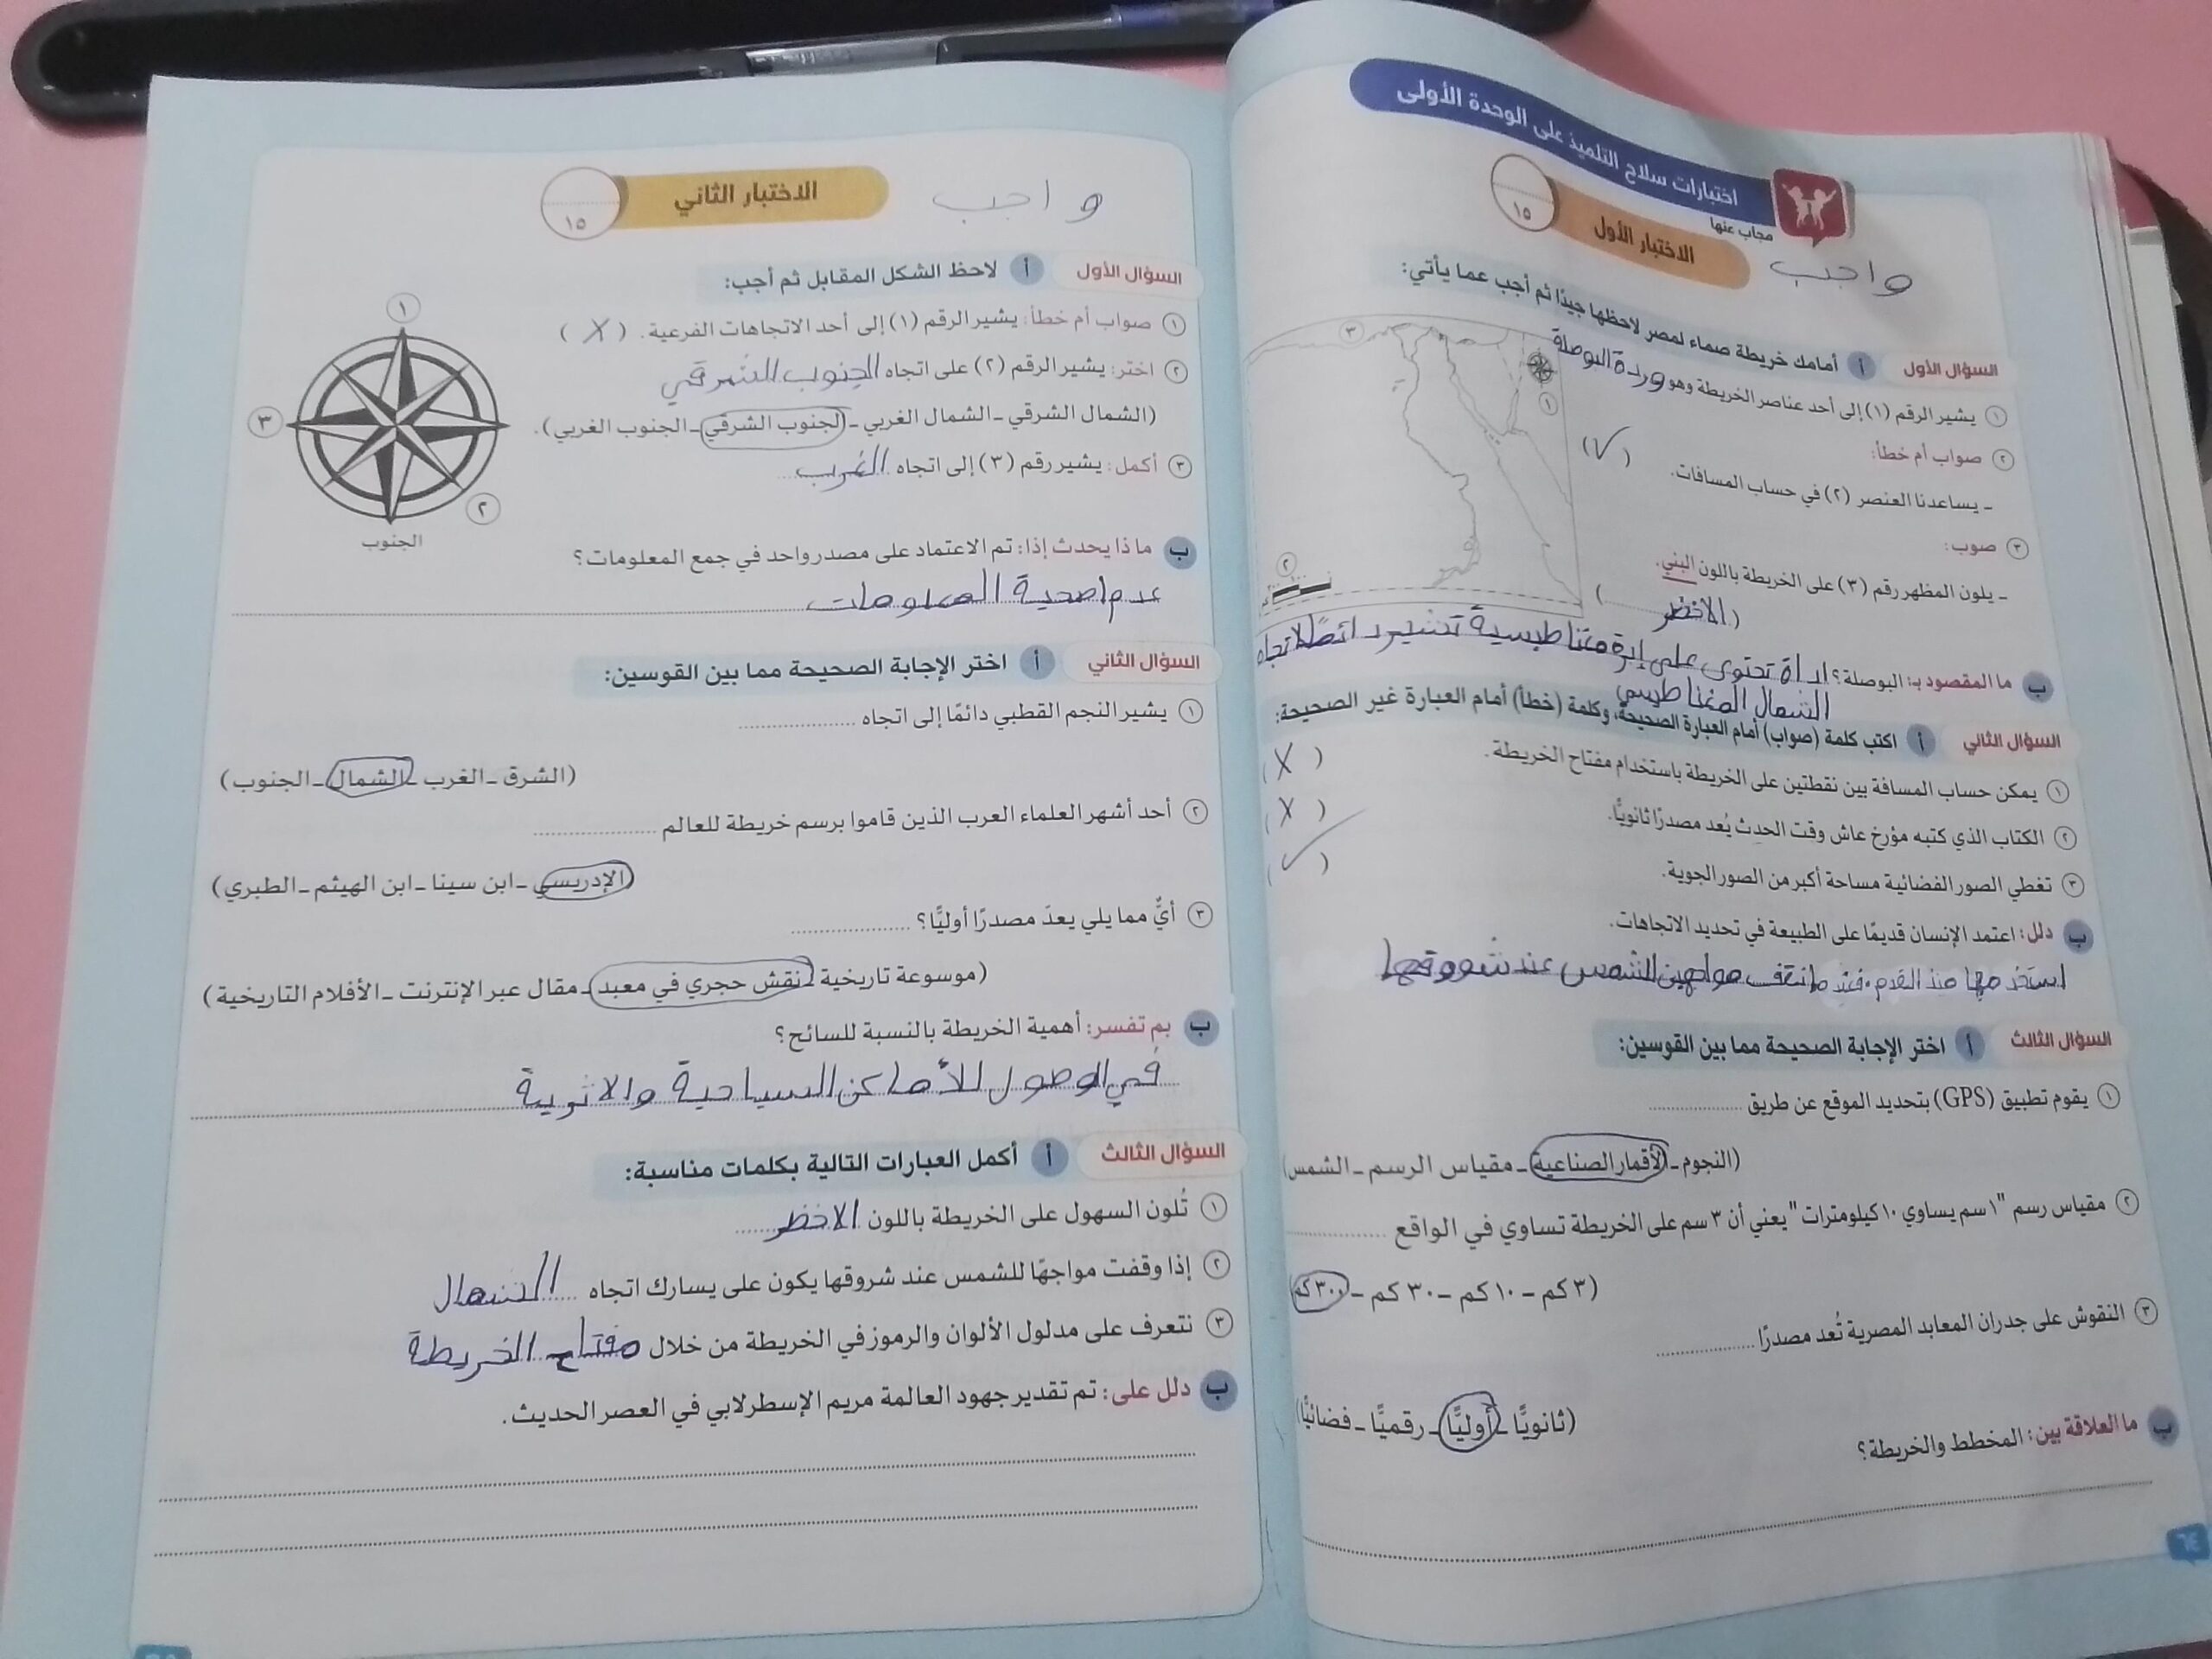 اختبارات سلاح التلميذ على الوحدة الأولى
مجاب عنها
الاختبار الأول
١٥
واجب
السؤال الأول أ أمامك خريطة صماء لمصر لاحظها جيدًا ثم أجب عما يأتي:
١ يشير الرقم (١) إلى أحد عناصر الخريطة وهو وردة البوصلة
٢ صواب أم خطأ:
ـ يساعدنا العنصر (٢) في حساب المسافات. (✓)
٣ صوب:
ـ يلون المظهر رقم (٣) على الخريطة باللون البني.
(الاخظر)
٣
١
٢
ب ما المقصود بـ: البوصلة؟ اداة تحتوى على إبرة مغناطيسية تشير دائمًا لاتجاه
الشمال المغناطيسي
السؤال الثاني أ اكتب كلمة (صواب) أمام العبارة الصحيحة، وكلمة (خطأ) أمام العبارة غير الصحيحة:
١ يمكن حساب المسافة بين نقطتين على الخريطة باستخدام مفتاح الخريطة. (X)
٢ الكتاب الذي كتبه مؤرخ عاش وقت الحدث يُعد مصدرًا ثانويًّا. (X)
٣ تغطي الصور الفضائية مساحة أكبر من الصور الجوية. (✓)
ب دلل: اعتمد الإنسان قديمًا على الطبيعة في تحديد الاتجاهات.
استخدمها منذ القدم فعندما تقف مواجهين للشمس عند شروقها
السؤال الثالث أ اختر الإجابة الصحيحة مما بين القوسين:
١ يقوم تطبيق (GPS) بتحديد الموقع عن طريق
(النجوم ـ الأقمار الصناعية ـ مقياس الرسم ـ الشمس)
٢ مقياس رسم "١ سم يساوي ١٠ كيلومترات" يعني أن ٣ سم على الخريطة تساوي في الواقع
(٣ كم ـ ١٠ كم ـ ٣٠ كم ـ ٣٠٠ كم)
٣ النقوش على جدران المعابد المصرية تُعد مصدرًا
(ثانويًّا ـ أوليًّا ـ رقميًّا ـ فضائيًّا)
ب ما العلاقة بين: المخطط والخريطة؟
٦٤
واجب
الاختبار الثاني
١٥
السؤال الأول أ لاحظ الشكل المقابل ثم أجب:
١ صواب أم خطأ: يشير الرقم (١) إلى أحد الاتجاهات الفرعية. (X)
٢ اختر: يشير الرقم (٢) على اتجاه الجنوب الشرقي
(الشمال الشرقي ـ الشمال الغربي ـ الجنوب الشرقي ـ الجنوب الغربي).
٣ أكمل: يشير رقم (٣) إلى اتجاه الغرب
١
٣
٢
الجنوب
ب ماذا يحدث إذا: تم الاعتماد على مصدر واحد في جمع المعلومات؟
عدم صحية المعلومات
السؤال الثاني أ اختر الإجابة الصحيحة مما بين القوسين:
١ يشير النجم القطبي دائمًا إلى اتجاه
(الشرق ـ الغرب ـ الشمال ـ الجنوب)
٢ أحد أشهر العلماء العرب الذين قاموا برسم خريطة للعالم
(الإدريسي ـ ابن سينا ـ ابن الهيثم ـ الطبري)
٣ أيٌّ مما يلي يعد مصدرًا أوليًّا؟
(موسوعة تاريخية ـ نقش حجري في معبد ـ مقال عبر الإنترنت ـ الأفلام التاريخية)
ب بم تفسر: أهمية الخريطة بالنسبة للسائح؟
في الوصول للأماكن السياحية والاثرية
السؤال الثالث أ أكمل العبارات التالية بكلمات مناسبة:
١ تُلون السهول على الخريطة باللون الاخظر
٢ إذا وقفت مواجهًا للشمس عند شروقها يكون على يسارك اتجاه الشمال
٣ نتعرف على مدلول الألوان والرموز في الخريطة من خلال مفتاح الخريطة
ب دلل على: تم تقدير جهود العالمة مريم الإسطرلابي في العصر الحديث.